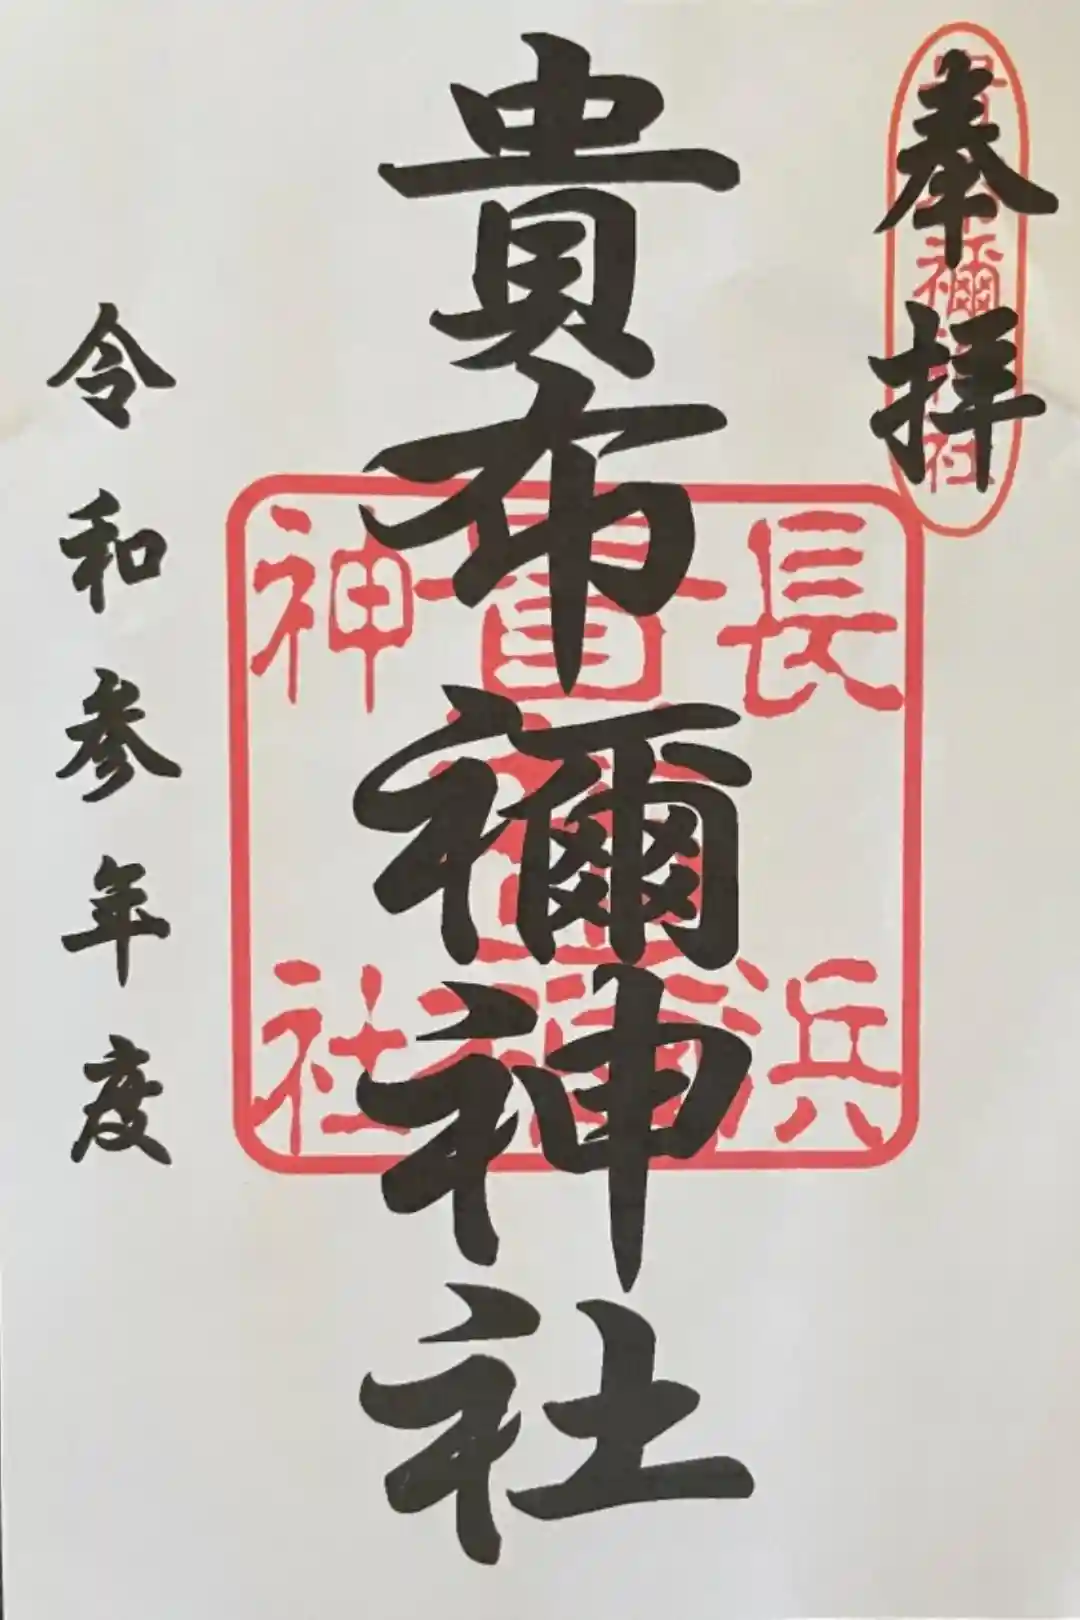 奉拝
貴布禰神社
貴布禰神社
長浜
貴布禰
神社
令和参年度